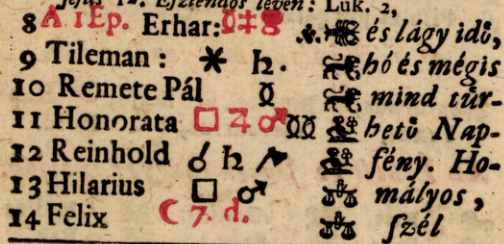 Jesus 12. Esztendös léven: Luk. 2,
8 A 1 Ep. Erhar: és lágy idö,
9 Tileman: ⚹ ♄. hó és mégis
10 Remete Pál mind tür-
11 Honorata □ ♃ ♂ hetö Nap-
12 Reinhold ☌ ♄ fény. Ho-
13 Hilarius □ ♂ mályos,
14 Felix ☾ 7. d. ſzél